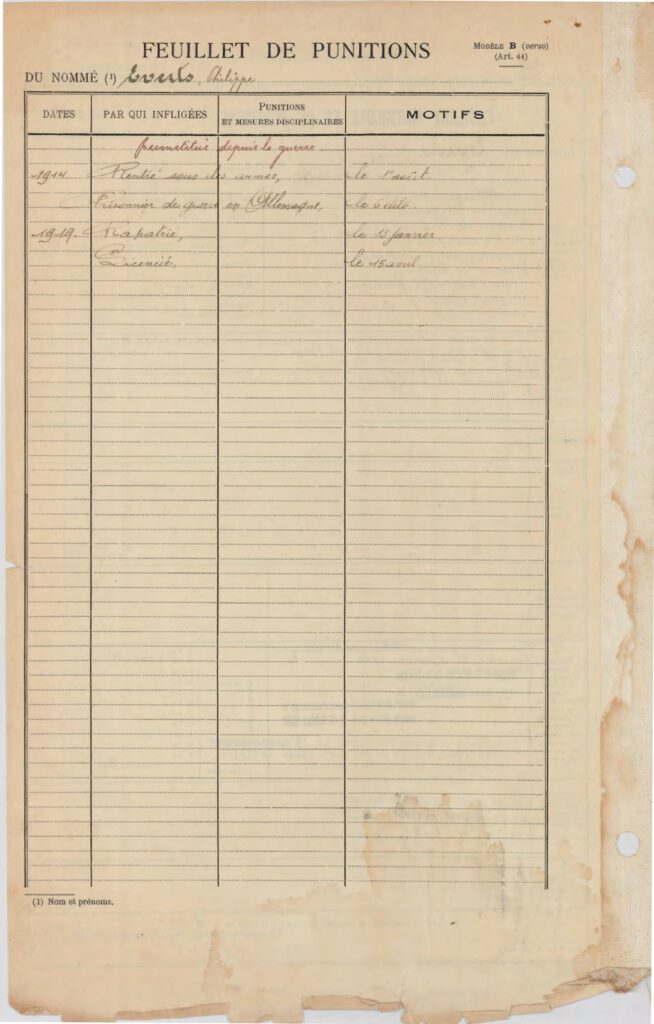 FEUILLET DE PUNITIONS
MODÈLE B (verso)
(Art. 44)
DU NOMMÉ (1) Everts, Philippe
DATES PAR QUI INFLIGÉES PUNITIONS ET MESURES DISCIPLINAIRES MOTIFS
depuis la guerre
1914 Rentré sous les armes, le 1 août
Prisonnier de guerre en Allemagne, le 6 dito.
1919. Rapatrié, le 13 janvier
Licencié, le 15 avril
(1) Nom et prénoms.